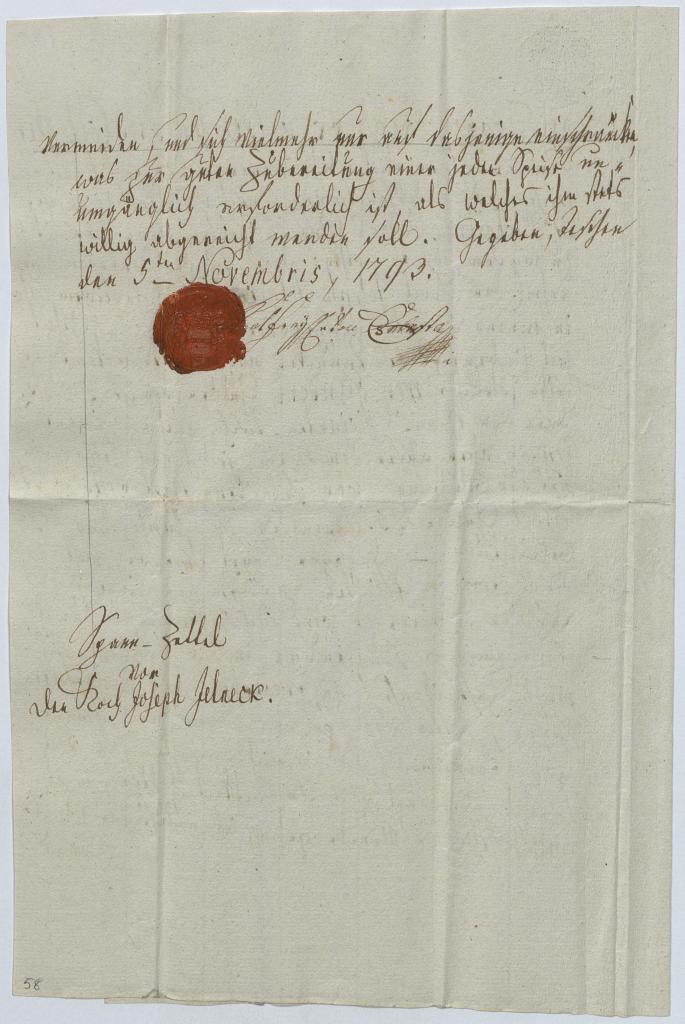 vermeiden, und sich vielmehr nur auf dasjenige einschränke,
was zur guten Zubereitung einer jeden Speise un-
umgänglich erforderlich ist, als welches ihm stets
willig abgereicht werden soll. Gegeben, Teschen
den 5ten Novembris, 1793.
Spann-Zettel
vor
den Koch Joseph Jelneck.
58